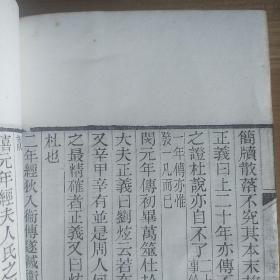 簡牘散落不究其本末
正義曰上二十年亦傳
之證杜說亦自不了
一年傳亦惟
發一凡而已
閔元年傳初畢萬筮仕
大夫正義曰劉炫云若
又辛甲辛有並是周人
之最精確者正義又曰
杜也
二年經狄入衛傳遂滅
僖元年經夫人氏之